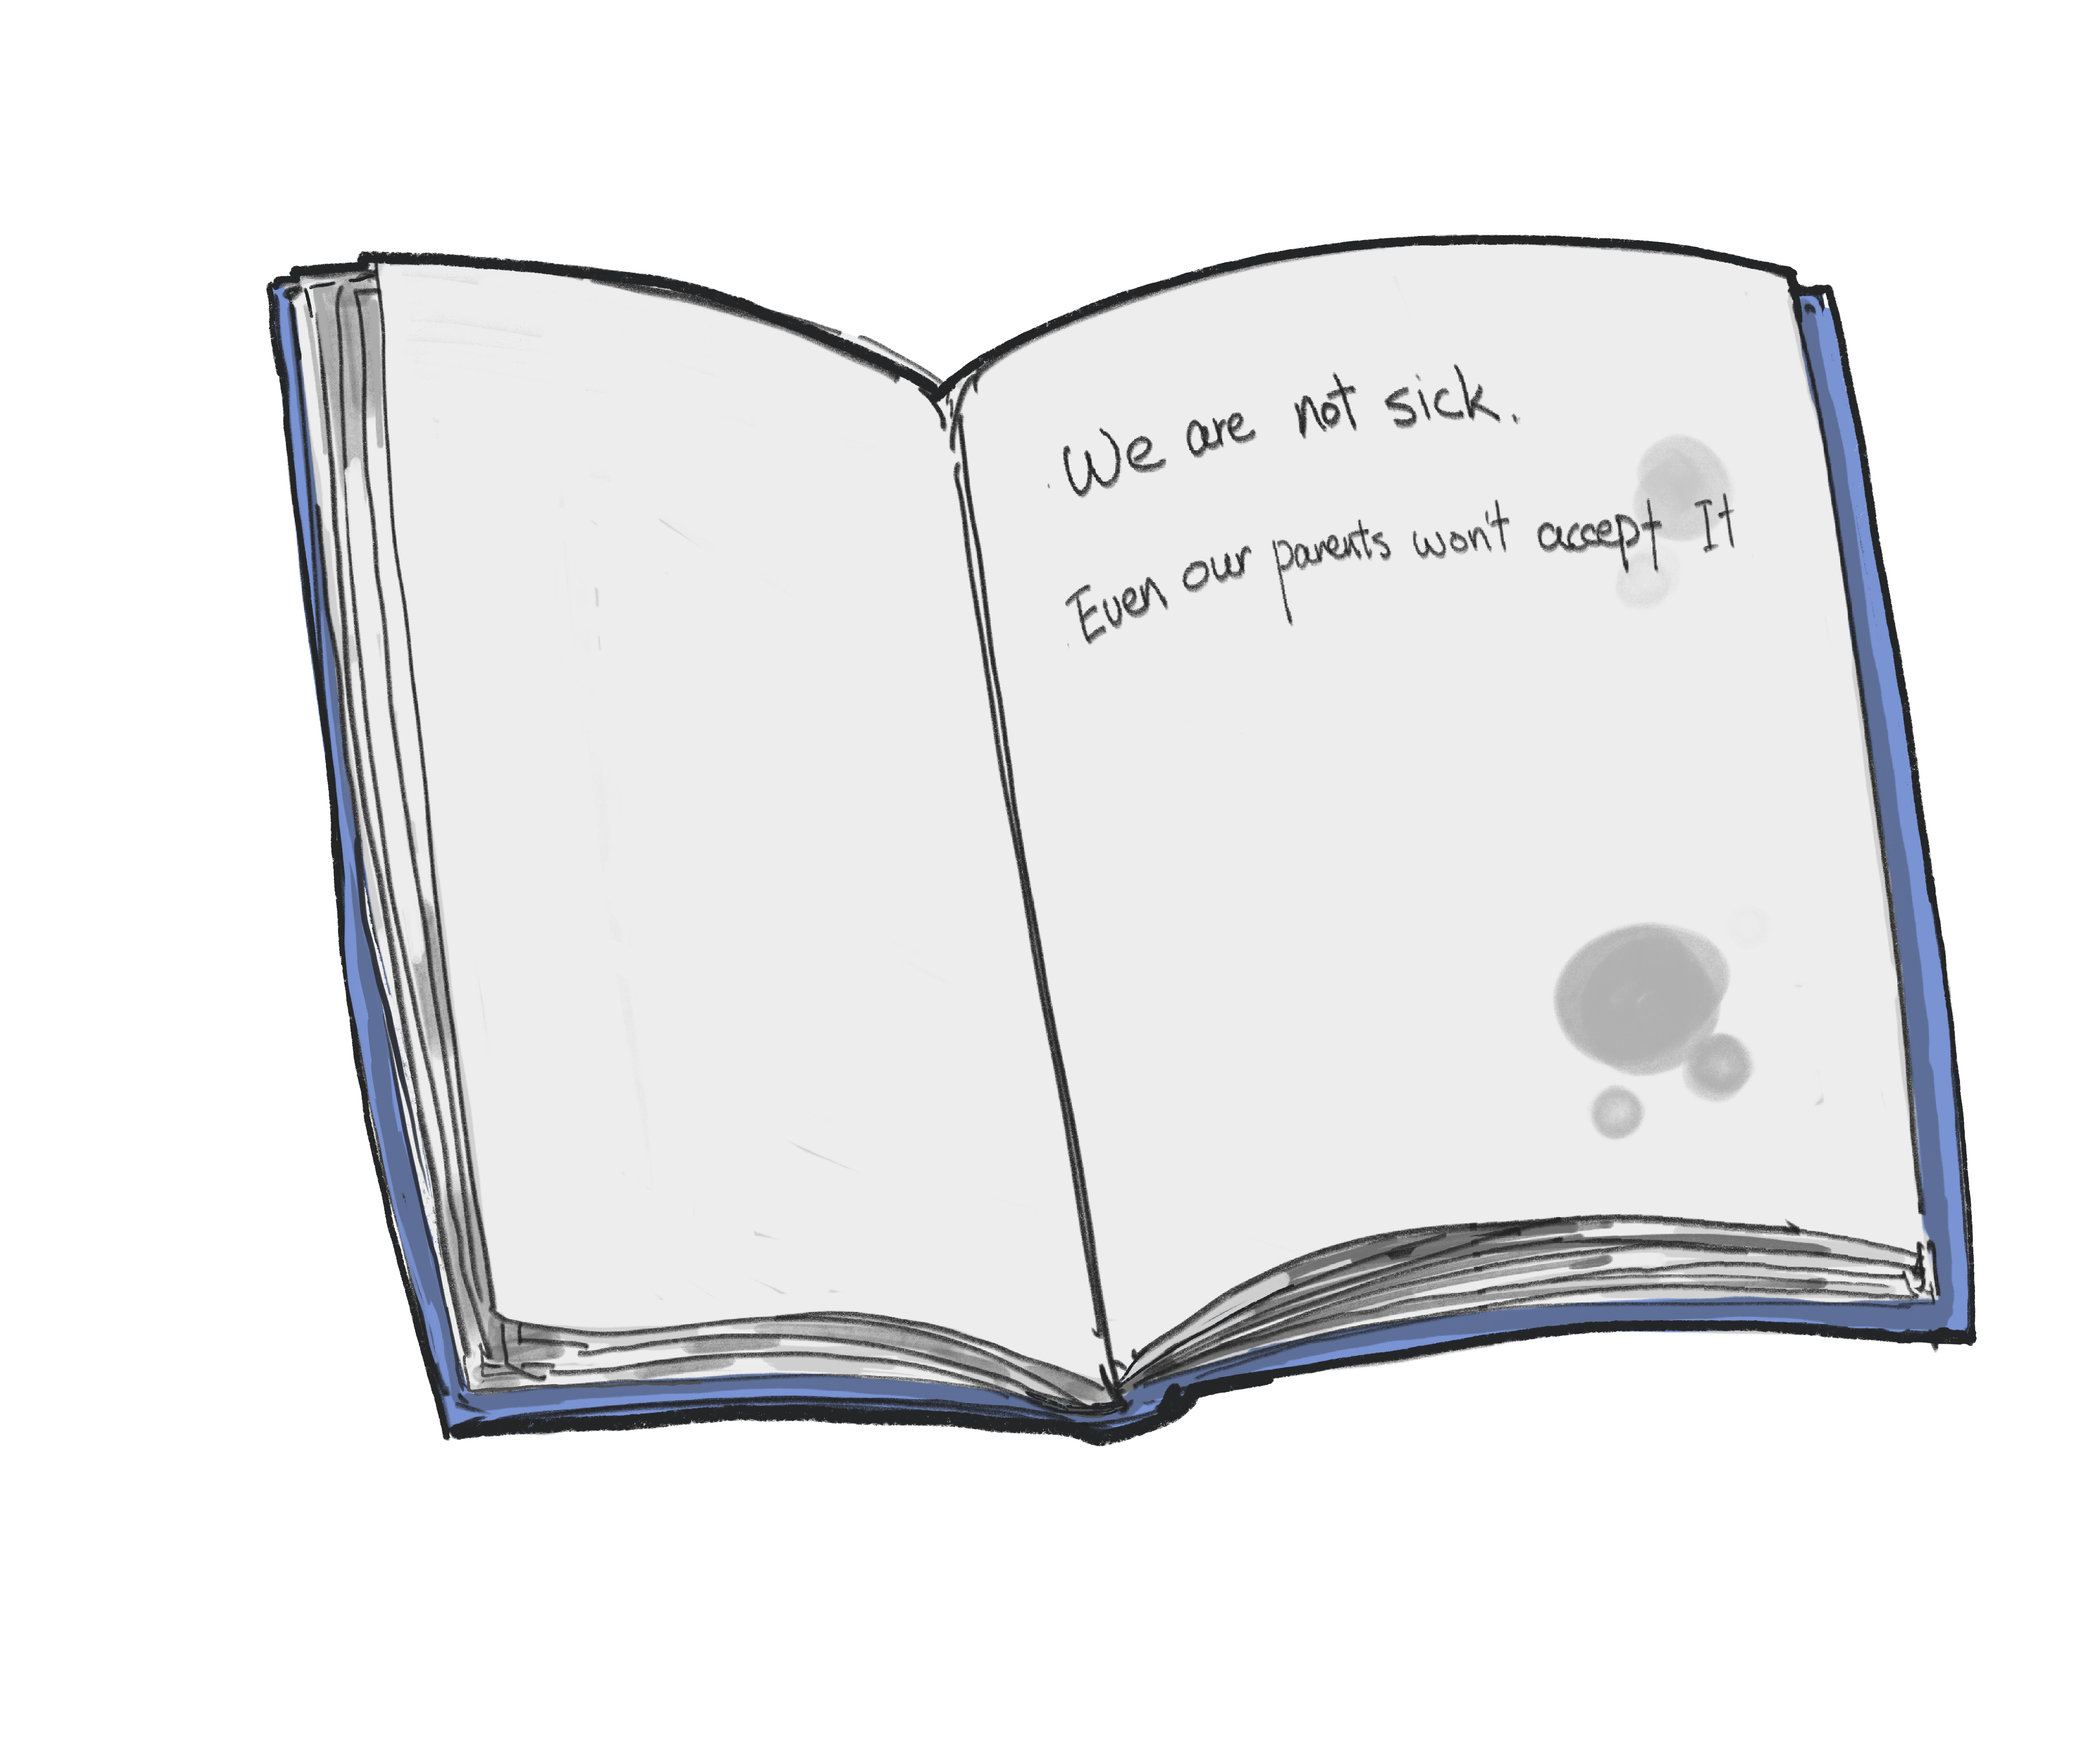 We are not sick.
Even our parents won't accept It